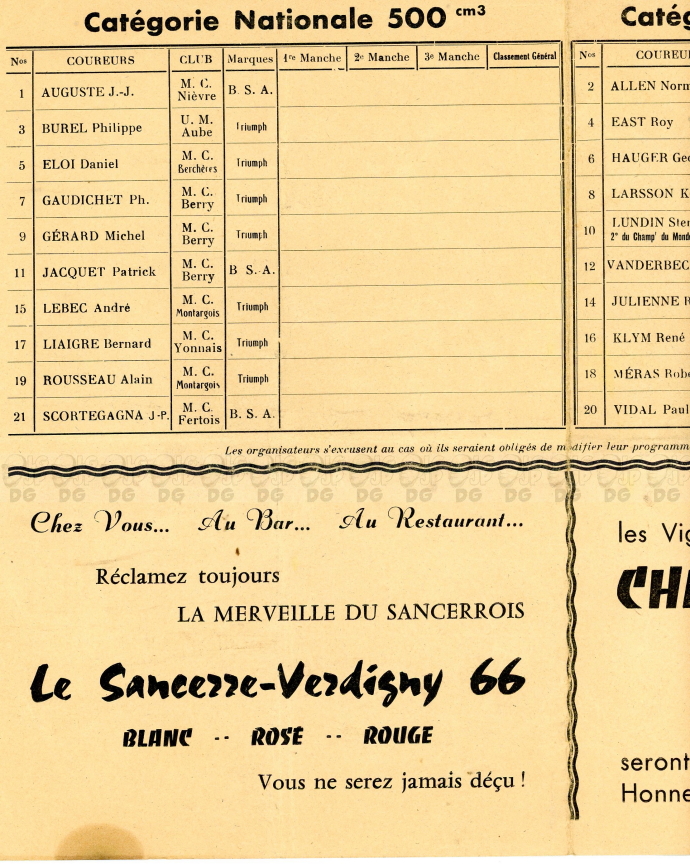 Catégorie Nationale 500 cm3
Nos COUREURS CLUB Marques 1re Manche 2e Manche 3e Manche Classement Général
1 AUGUSTE J.-J. M. C. Nièvre B. S. A.
3 BUREL Philippe U. M. Aube Triumph
5 ELOI Daniel M. C. Berchères Triumph
7 GAUDICHET Ph. M. C. Berry Triumph
9 GÉRARD Michel M. C. Berry Triumph
11 JACQUET Patrick M. C. Berry B S. A.
15 LEBEC André M. C. Montargois Triumph
17 LIAIGRE Bernard M. C. Yonnais Triumph
19 ROUSSEAU Alain M. C. Montargois Triumph
21 SCORTEGAGNA J-P. M. C. Fertois B. S. A.
Catég
Nos COUREU
2 ALLEN Norm
4 EAST Roy
6 HAUGER Geo
8 LARSSON K
10 LUNDIN Sten
2e du Champt du Monde
12 VANDERBEC
14 JULIENNE R
16 KLYM René
18 MÉRAS Robe
20 VIDAL Paul
Les organisateurs s'excusent au cas où ils seraient obligés de modifier leur programm
DG DG DG DG DG DG DG DG DG DG DG DG DG
Chez Vous... Au Bar... Au Restaurant...
Réclamez toujours
LA MERVEILLE DU SANCERROIS
Le Sancerre-Verdigny 66
BLANC -- ROSÉ -- ROUGE
Vous ne serez jamais déçu !
les Vig
CH
seront
Honne